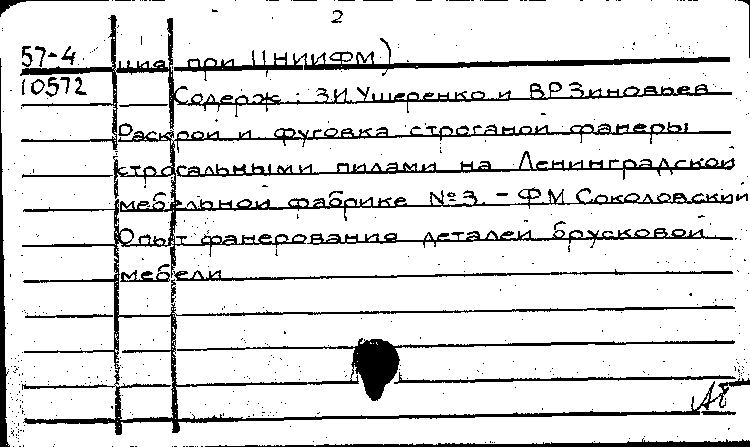 2
57-4 ция при ЦНИИФМ)
10572 Содерж.: З.И.Ушеренко и В.Р.Зиновьев
Раскрой и фуговка строганой фанеры
строгальными пилами на Ленинградской
мебельной фабрике №3. - Ф.М Соколовский
Опыт фанерования деталей брусковой
мебели